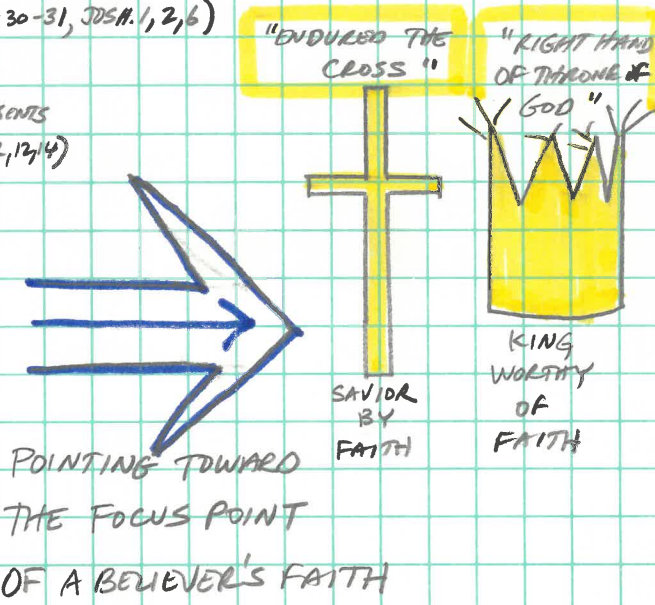 30-31, JOSH. 1, 2, 6)
"ENDURED THE
CROSS"
"RIGHT HAND
OF THRONE OF
GOD"
,12,14)
SAVIOR
BY
FAITH
KING
WORTHY
OF
FAITH
POINTING TOWARD
THE FOCUS POINT
OF A BELIEVER'S FAITH